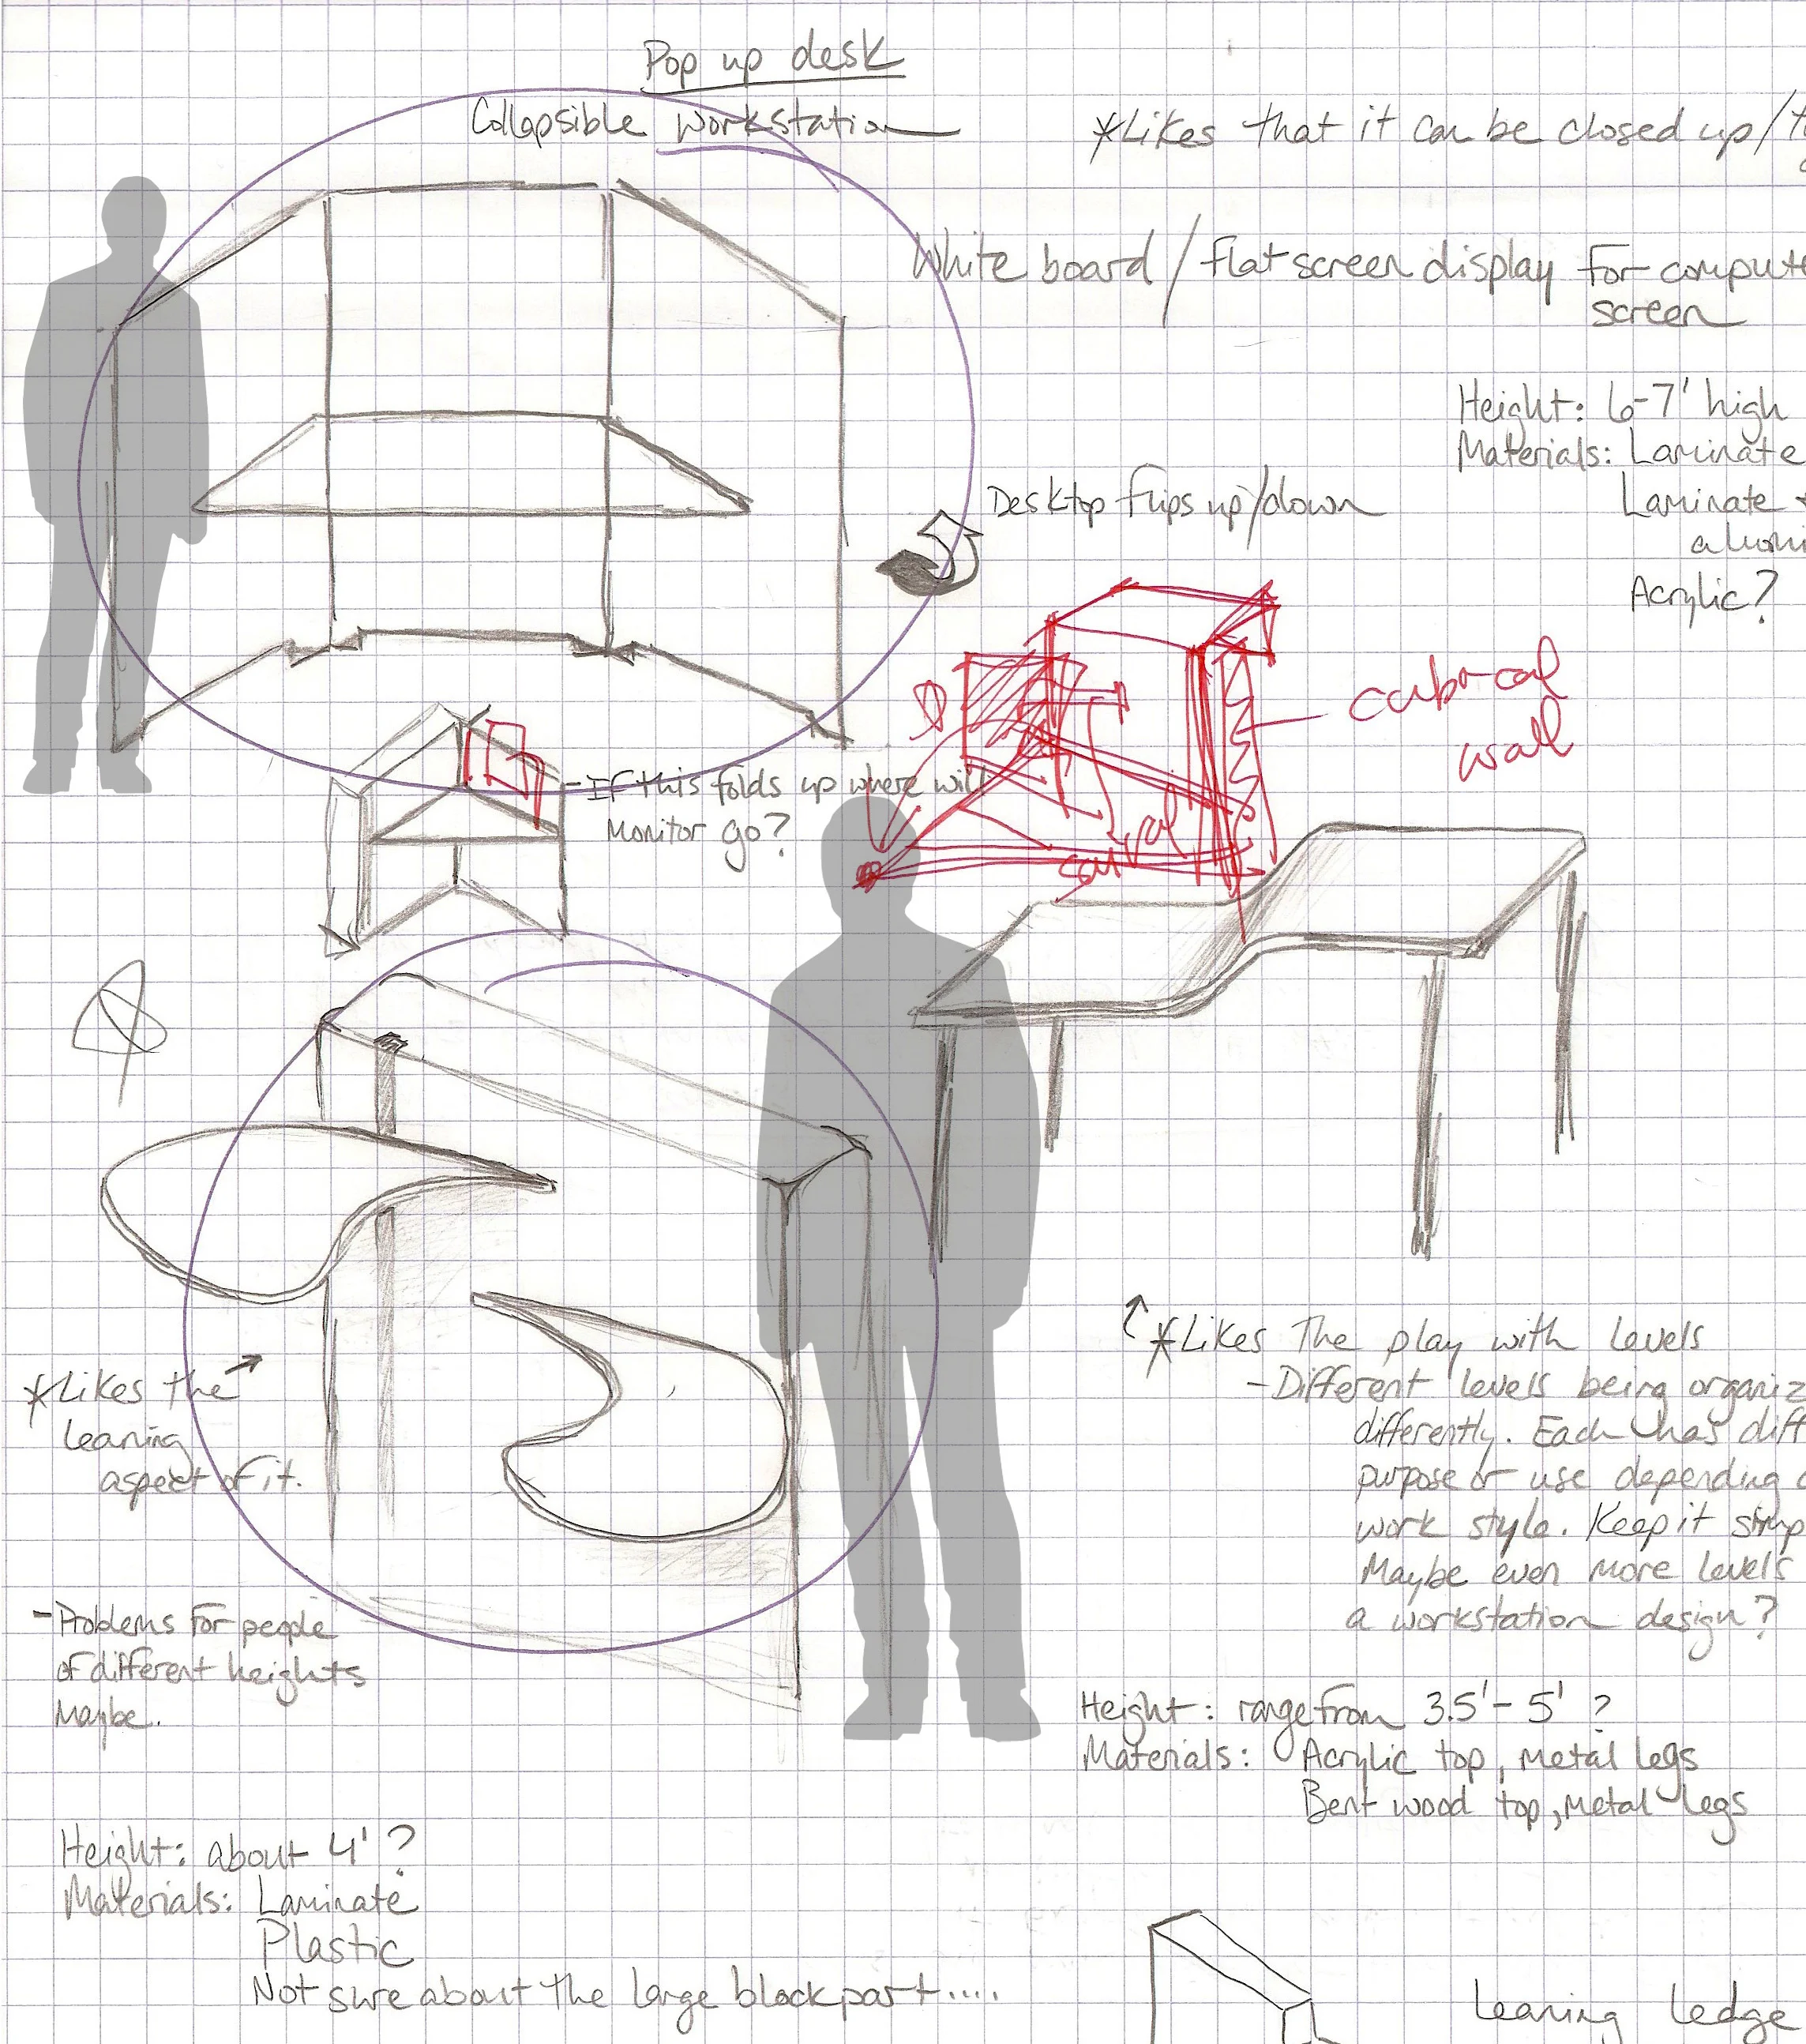 Pop up desk
Collapsible workstation
*Likes that it can be closed up/
White board / flat screen display for compute
screen
Height: 6-7' high
Materials: Laminate
Laminate +
alumi
Acrylic?
Desktop flips up/down
cubical
wall
- If this folds up where will
Monitor go?
*Likes the play with levels
- Different levels being organiz
differently. Each has diff
purpose or use depending
work style. Keep it simp
Maybe even more levels
a workstation design?
Height: range from 3.5' - 5' ?
Materials: Acrylic top, metal legs
Bent wood top, metal legs
*Likes the
leaning
aspect of it.
- Problems for people
of different heights
Maybe.
Height: about 4' ?
Materials: Laminate
Plastic
Not sure about the large block part....
leaning ledge